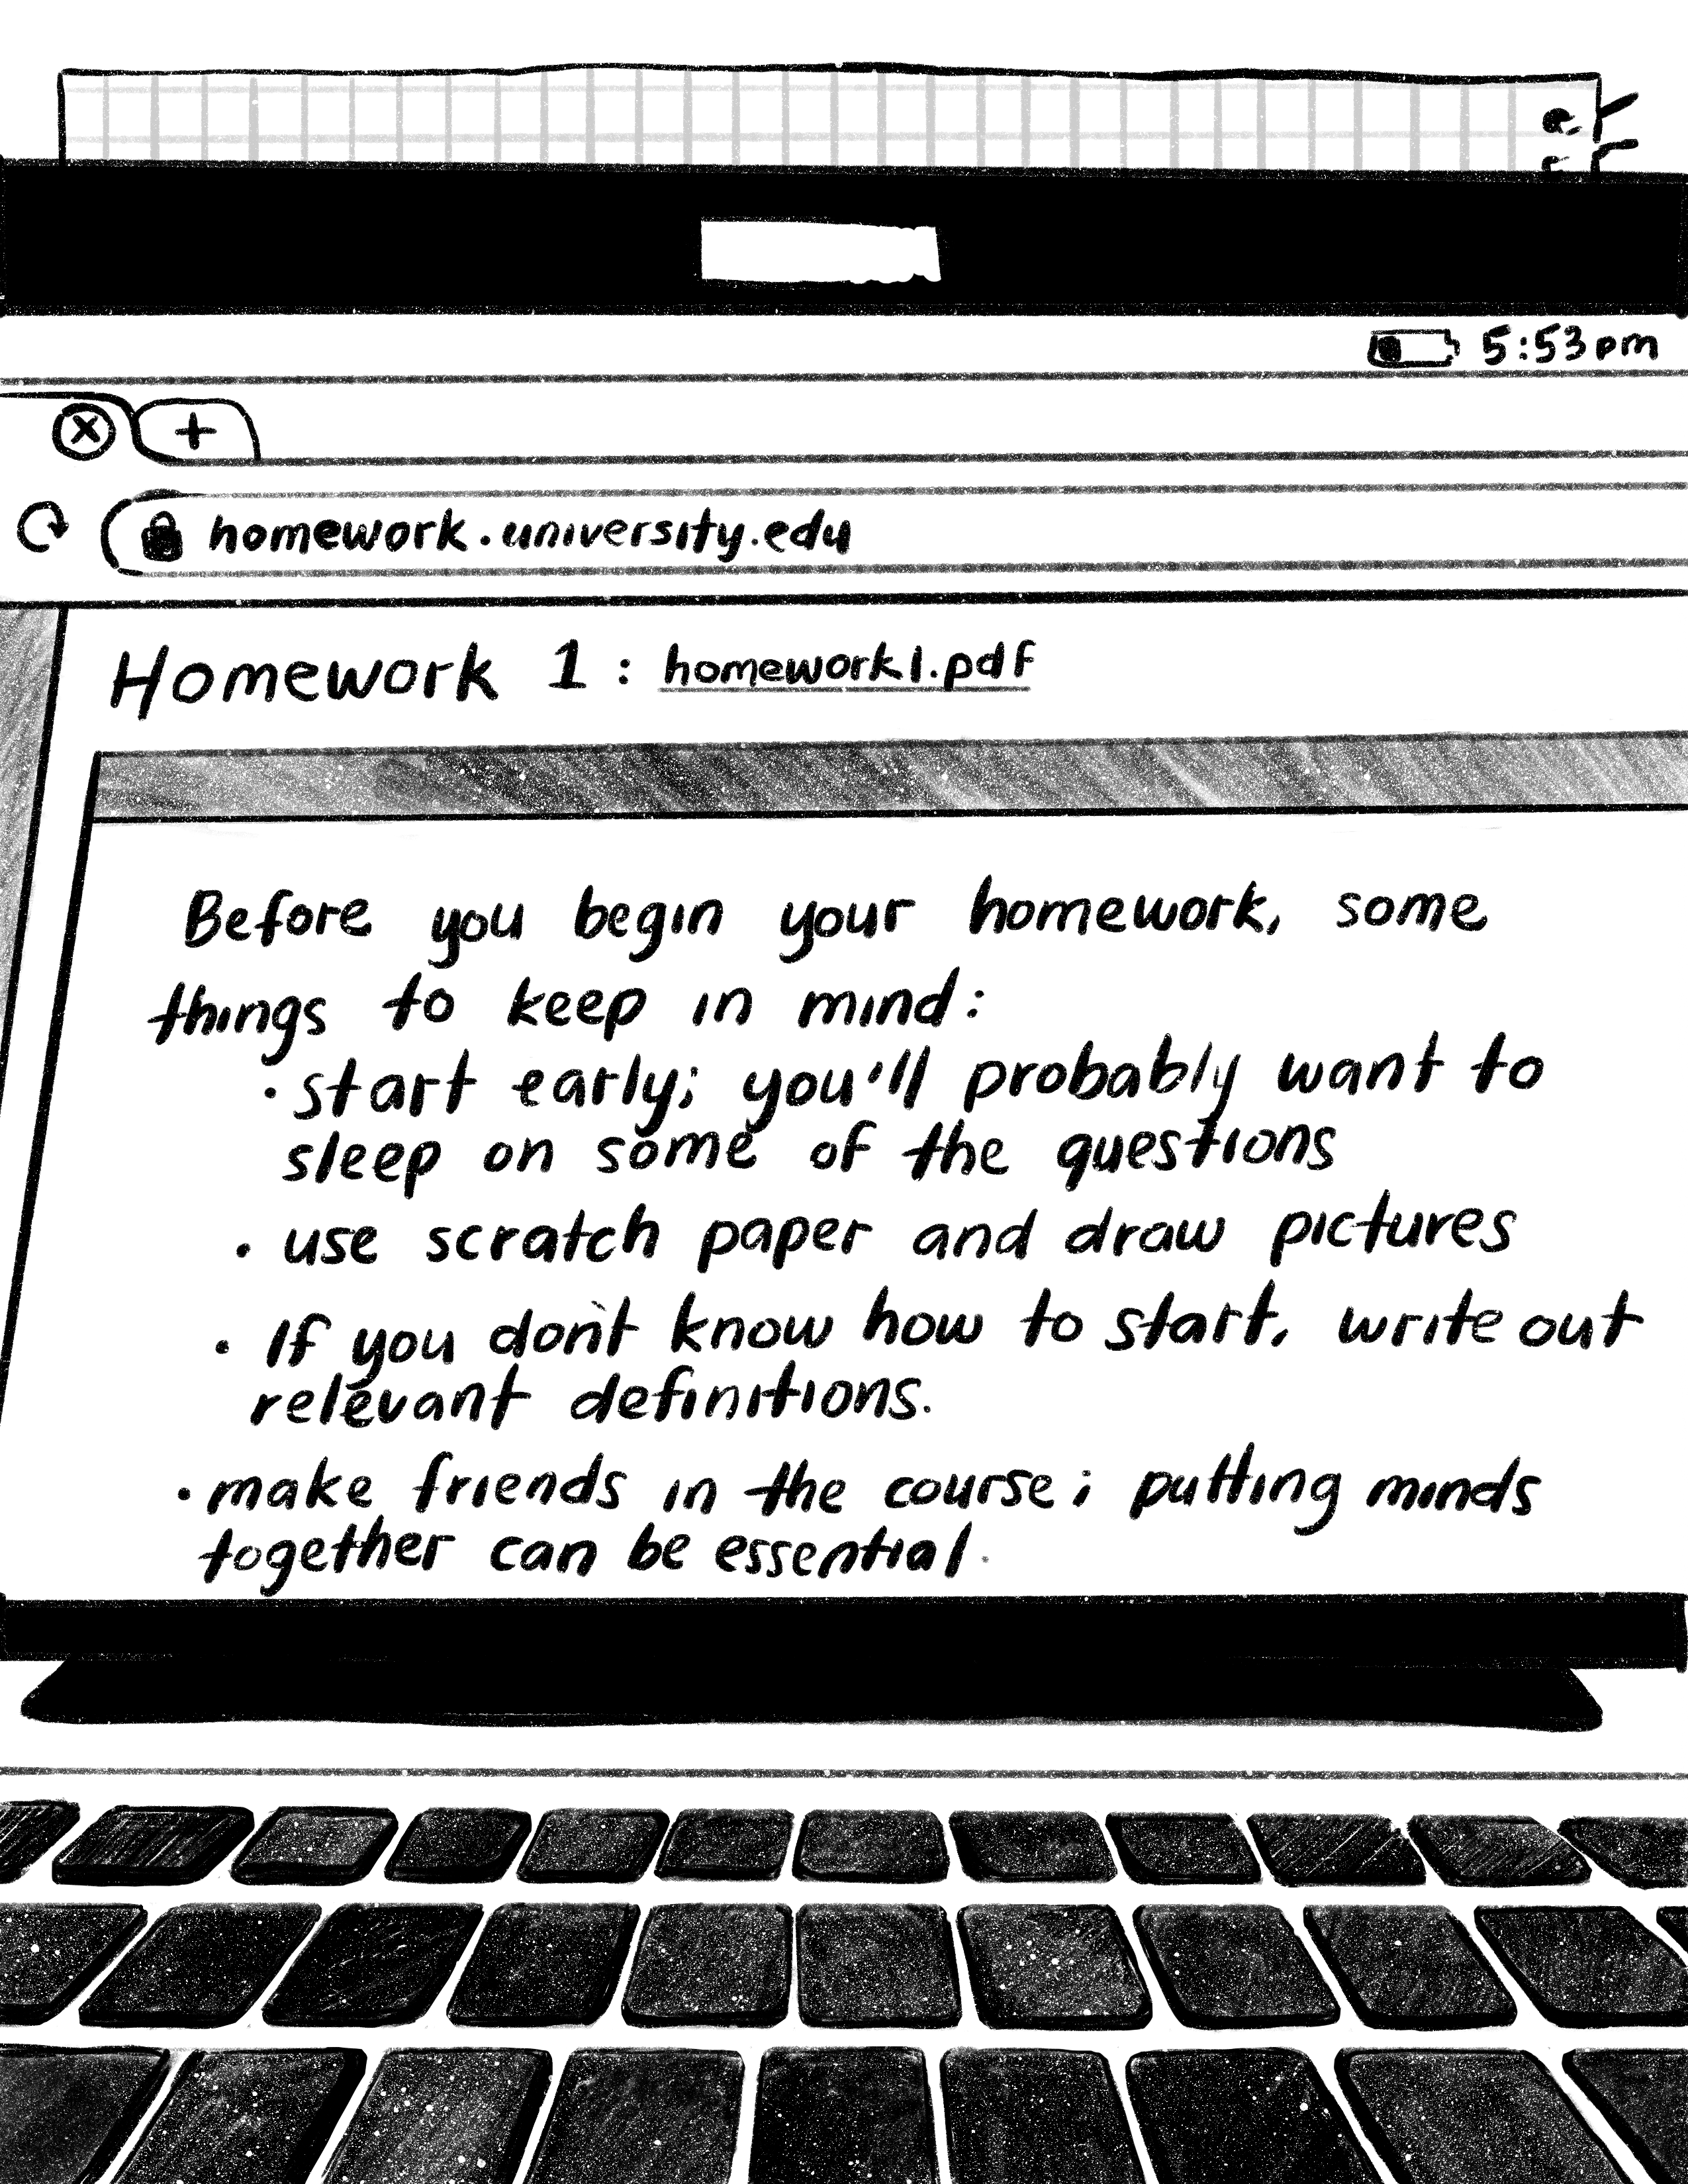 5:53pm
homework.university.edu
Homework 1: homework1.pdf
Before you begin your homework, some
things to keep in mind:
• start early; you'll probably want to
sleep on some of the questions
• use scratch paper and draw pictures
• If you don't know how to start, write out
relevant definitions.
• make friends in the course; putting minds
together can be essential.